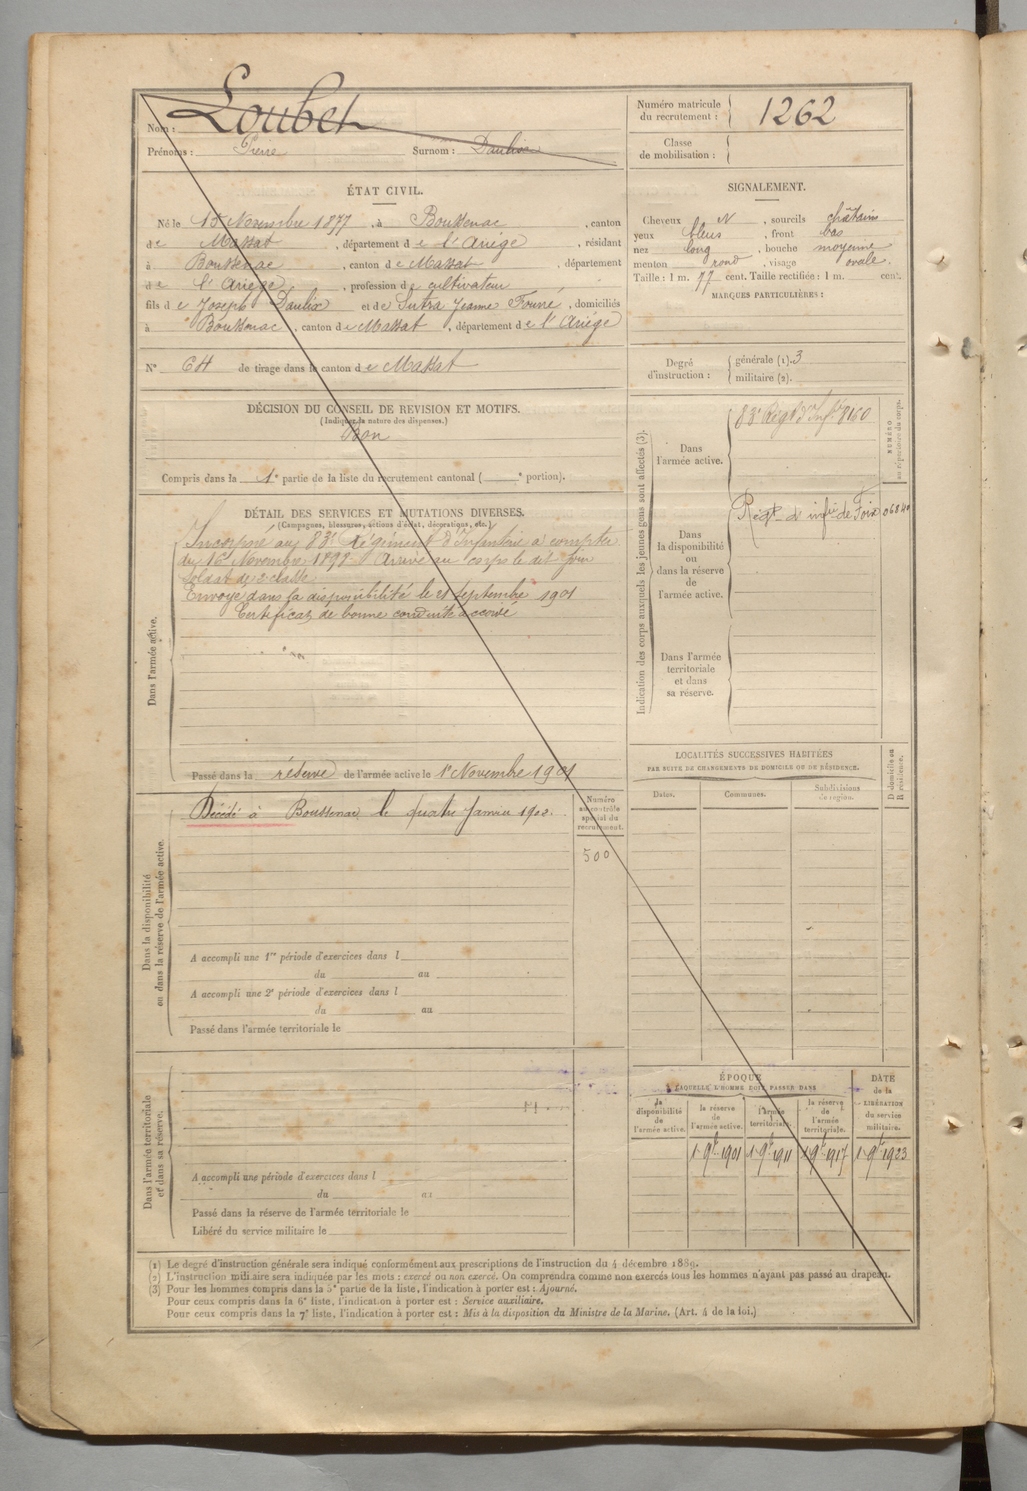 Nom : Loubet
Prénoms : Pierre Surnom : Daulix
Numéro matricule
du recrutement : 1262
Classe
de mobilisation :
ÉTAT CIVIL.
Né le 15 Novembre 1877, à Boussenac, canton
de Massat, département de l'Ariège, résidant
à Boussenac, canton de Massat, département
de l'Ariège, profession de cultivateur
fils de Joseph Daulix et de Sutra Jeanne Fouré, domiciliés
à Boussenac, canton de Massat, département de l'Ariège
N° 64 de tirage dans le canton de Massat
SIGNALEMENT.
Cheveux N, sourcils châtains
yeux bleus, front bas
nez long, bouche moyenne
menton rond, visage ovale.
Taille : 1 m. 77 cent. Taille rectifiée : 1 m. cent.
MARQUES PARTICULIÈRES :
Degré
d'instruction :
générale (1). 3
militaire (2).
DÉCISION DU CONSEIL DE REVISION ET MOTIFS.
(Indiquer la nature des dispenses.)
Bon
Compris dans la 1e partie de la liste du recrutement cantonal ( e portion).
DÉTAIL DES SERVICES ET MUTATIONS DIVERSES.
(Campagnes, blessures, actions d'éclat, décorations, etc.)
Dans l'armée active.
Incorporé au 83e Régiment d'Infanterie à compter
du 16 Novembre 1898 Arrivé au corps le dit jour
Soldat de 2e classe
Envoyé dans la disponibilité le 21 septembre 1901
Certificat de bonne conduite accordé
Passé dans la réserve de l'armée active le 1er Novembre 1901
Indication des corps auxquels les jeunes gens sont affectés (3).
NUMÉRO
au répertoire du corps.
Dans
l'armée active.
83e Régt d'Infie 8160
Dans
la disponibilité
ou
dans la réserve
de
l'armée active.
Régt d'infie de Foix
Dans l'armée
territoriale
et dans
sa réserve.
Dans la disponibilité
ou dans la réserve de l'armée active.
Décédé à Boussenac le quatre Janvier 1902.
Numéro
au contrôle
spécial du
recrutement.
500
A accompli une 1re période d'exercices dans l
du au
A accompli une 2e période d'exercices dans l
du au
Passé dans l'armée territoriale le
LOCALITÉS SUCCESSIVES HABITÉES
PAR SUITE DE CHANGEMENTS DE DOMICILE OU DE RÉSIDENCE.
Dates.
Communes.
Subdivisions
de région.
D domicile ou
R résidence.
Dans l'armée territoriale
et dans sa réserve.
A accompli une période d'exercices dans l
du au
Passé dans la réserve de l'armée territoriale le
Libéré du service militaire le
ÉPOQUE
À LAQUELLE L'HOMME DOIT PASSER DANS
DATE
de la
LIBÉRATION
du service
militaire.
la
disponibilité
de
l'armée active.
la réserve
de
l'armée active.
l'armée
territoriale.
la réserve
de
l'armée
territoriale.
1 9bre 1901
1 9bre 1911
1 9bre 1917
1 9bre 1923
(1) Le degré d'instruction générale sera indiqué conformément aux prescriptions de l'instruction du 4 décembre 1889.
(2) L'instruction militaire sera indiquée par les mots : exercé ou non exercé. On comprendra comme non exercés tous les hommes n'ayant pas passé au drapeau.
(3) Pour les hommes compris dans la 5e partie de la liste, l'indication à porter est : Ajourné.
Pour ceux compris dans la 6e liste, l'indication à porter est : Service auxiliaire.
Pour ceux compris dans la 7e liste, l'indication à porter est : Mis à la disposition du Ministre de la Marine. (Art. 4 de la loi.)